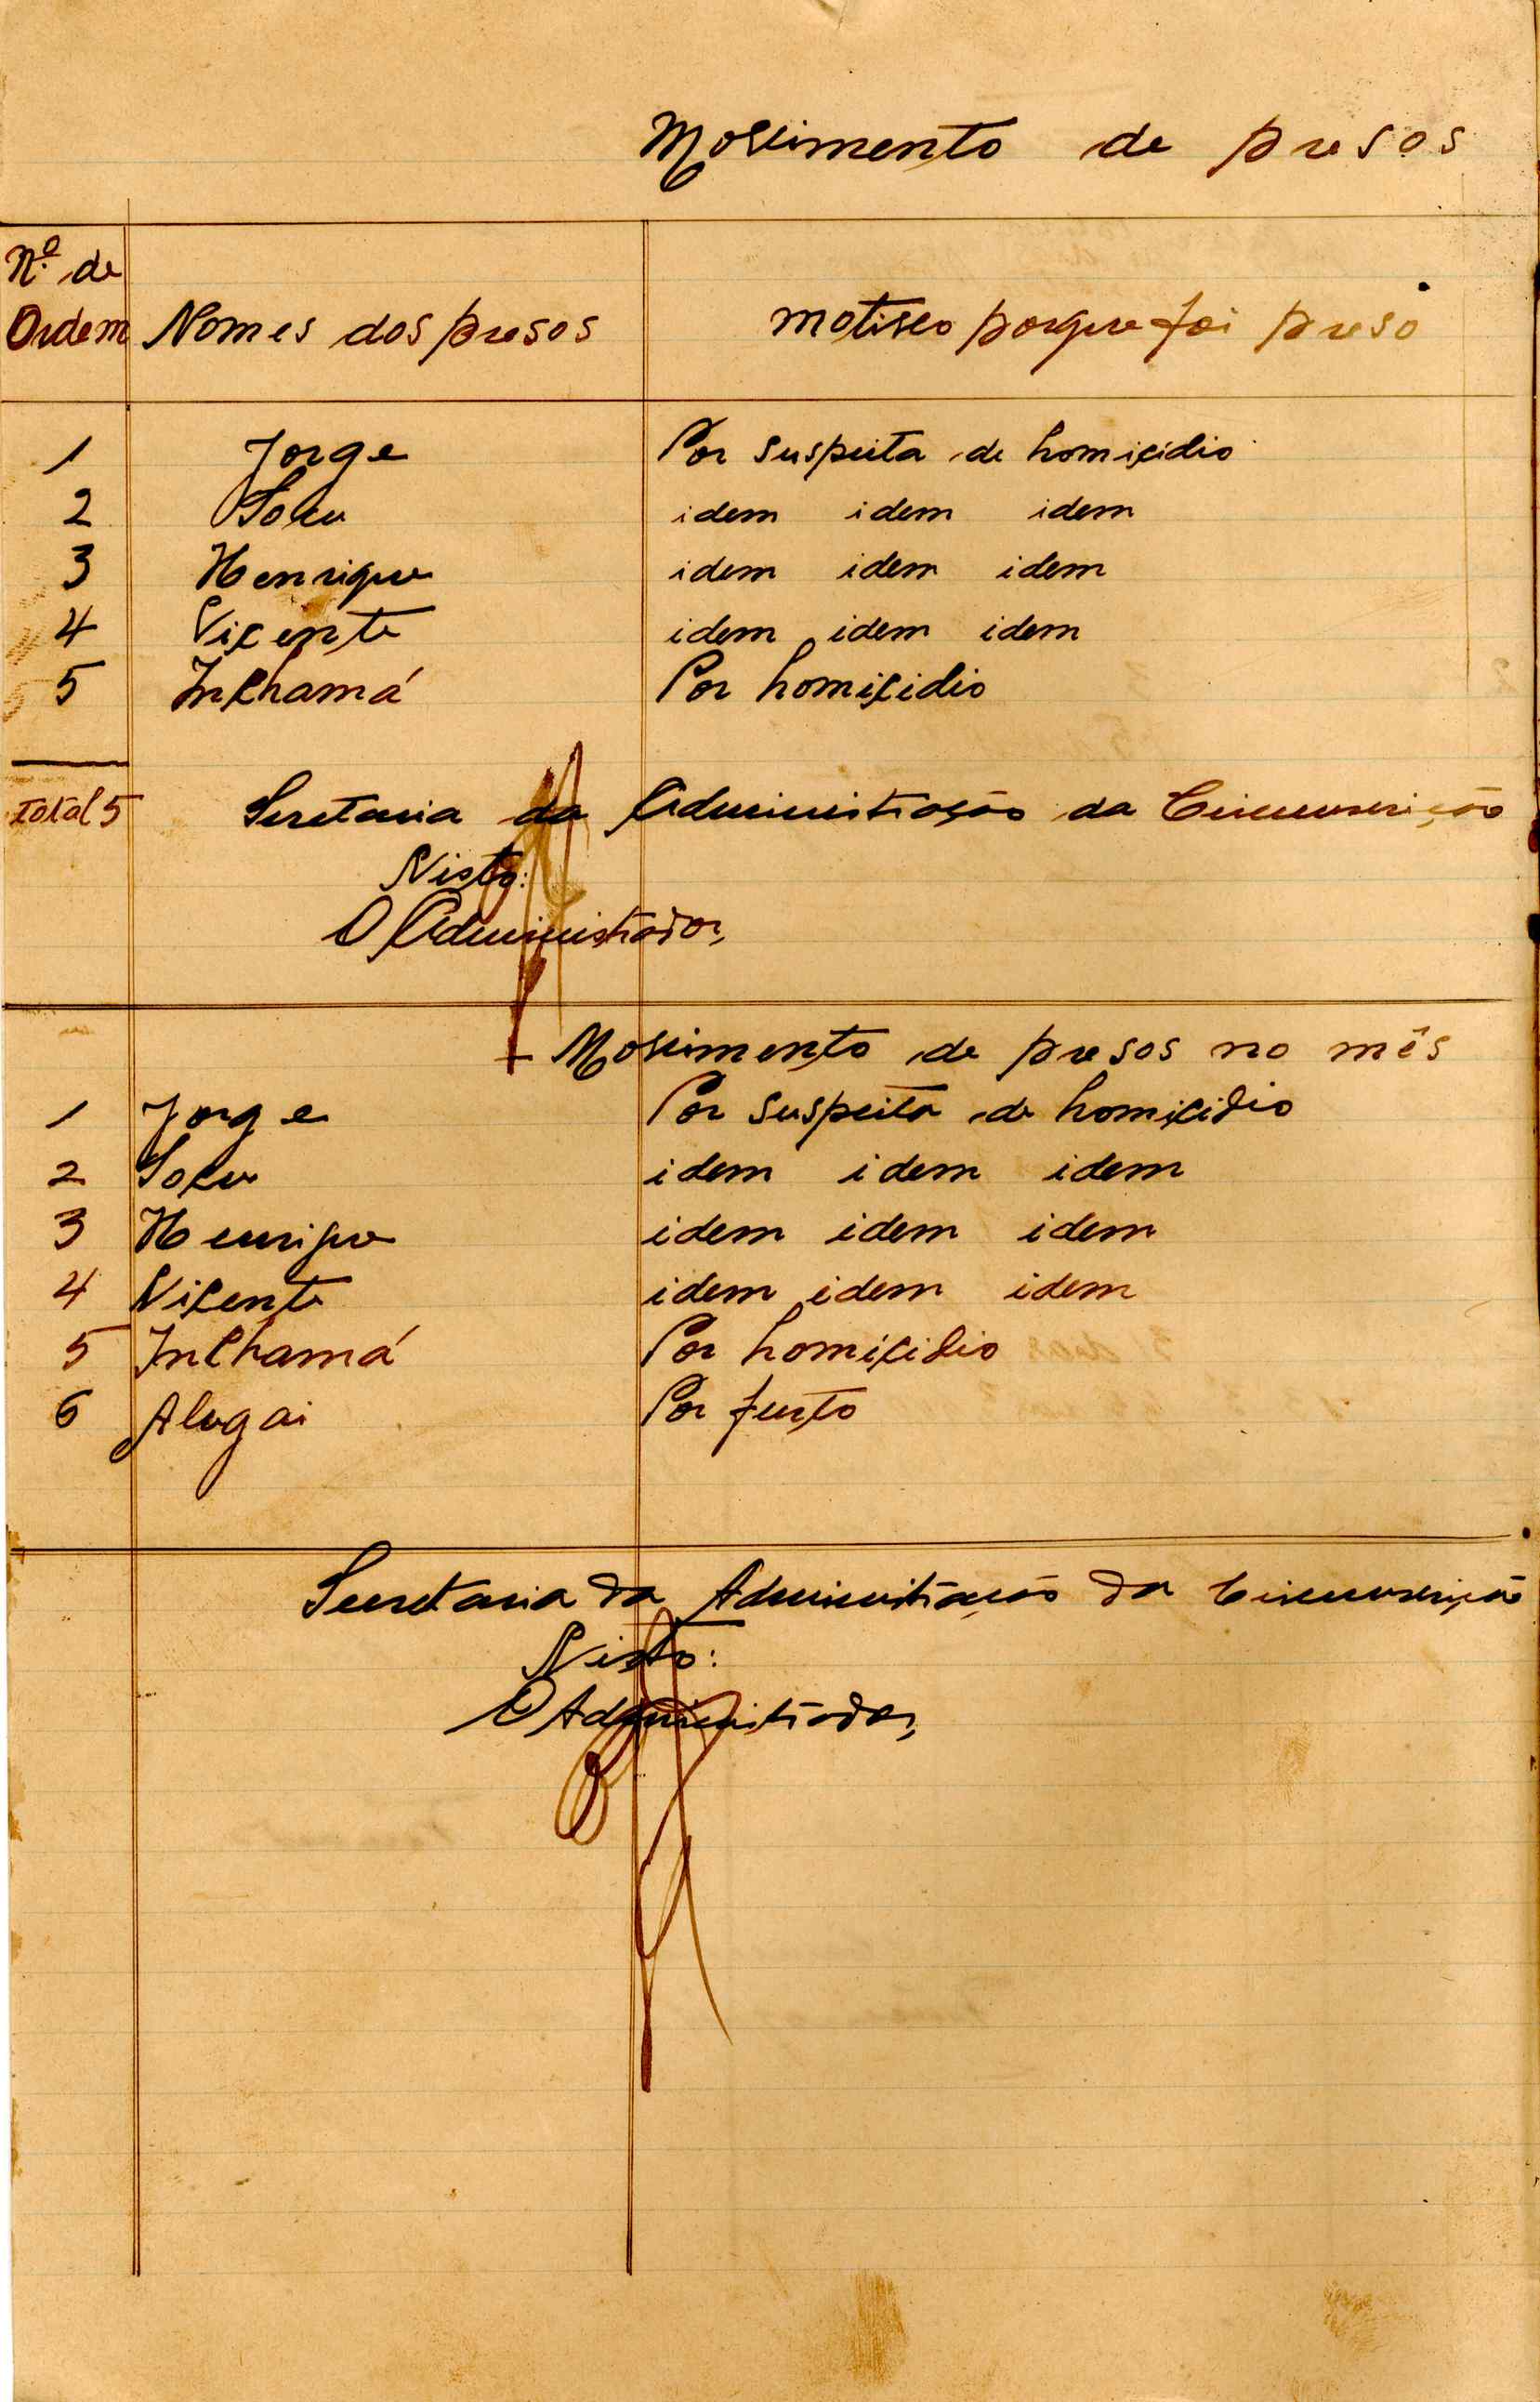 Movimento de presos
Nº de
Ordem Nomes dos presos motivo porque foi preso
1 Jorge Por suspeita de homicidio
2 Socu idem idem idem
3 Henrique idem idem idem
4 Vicente idem idem idem
5 Inchamá Por homicidio
Total 5 Secretaria da Administração da Circunscrição
Visto:
O Administrador,
Movimento de presos no mês
1 Jorge Por suspeita de homicidio
2 Socu idem idem idem
3 Henrique idem idem idem
4 Vicente idem idem idem
5 Inchamá Por homicidio
6 Alugai Por furto
Secretaria da Administração da Circunscrição
Visto:
O Administrador,